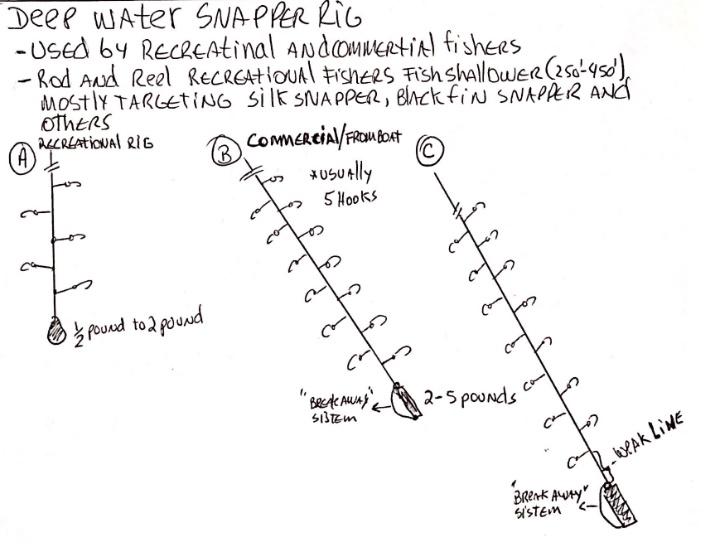 Deep Water SNAPPER RiG
- USED by RECREATINAL ANDCOMMERTIAL fishERS
- ROD AND REEL RECREATIONAL FISHERS FISH SHALLOWER (250'-450')
MOSTLY TARGETING Silk SNAPPER, BlackfiN SNAPPER AND
OTHERS
A RECREATIONAL RIG
B COMMERCIAL/FROM BOAT
C
*USUALLY
5 HOOKS
1/2 POUND to 2 POUND
"BREAK AWAY"
SISTEM
2-5 POUNDS
WEAK LINE
"BREAK AWAY"
SISTEM